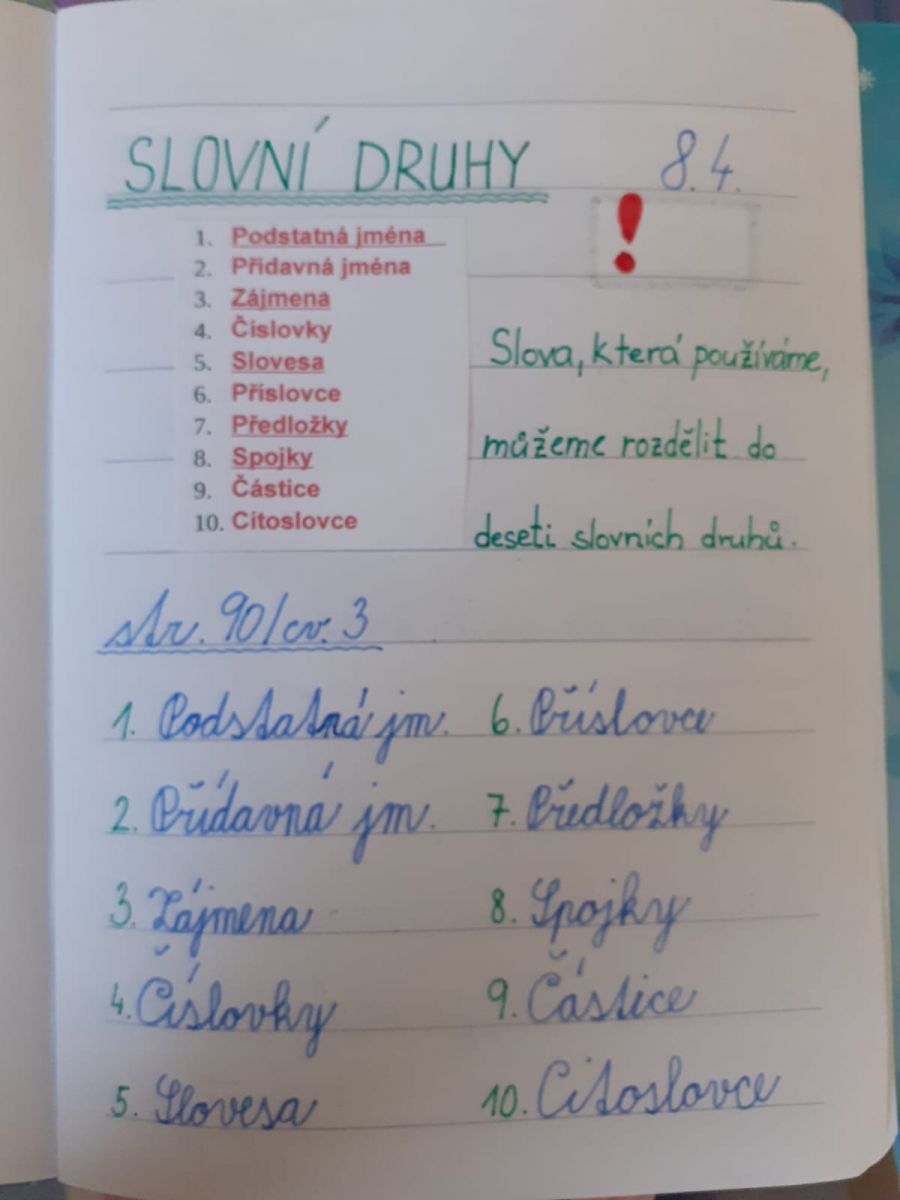 SLOVNÍ DRUHY 8.4.
!
1. Podstatná jména
2. Přídavná jména
3. Zájmena
4. Číslovky
5. Slovesa
6. Příslovce
7. Předložky
8. Spojky
9. Částice
10. Citoslovce
Slova, která používáme,
můžeme rozdělit do
deseti slovních druhů.
str. 90/cv. 3
1. Podstatná jm.
2. Přídavná jm.
3. Zájmena
4. Číslovky
5. Slovesa
6. Příslovce
7. Předložky
8. Spojky
9. Částice
10. Citoslovce